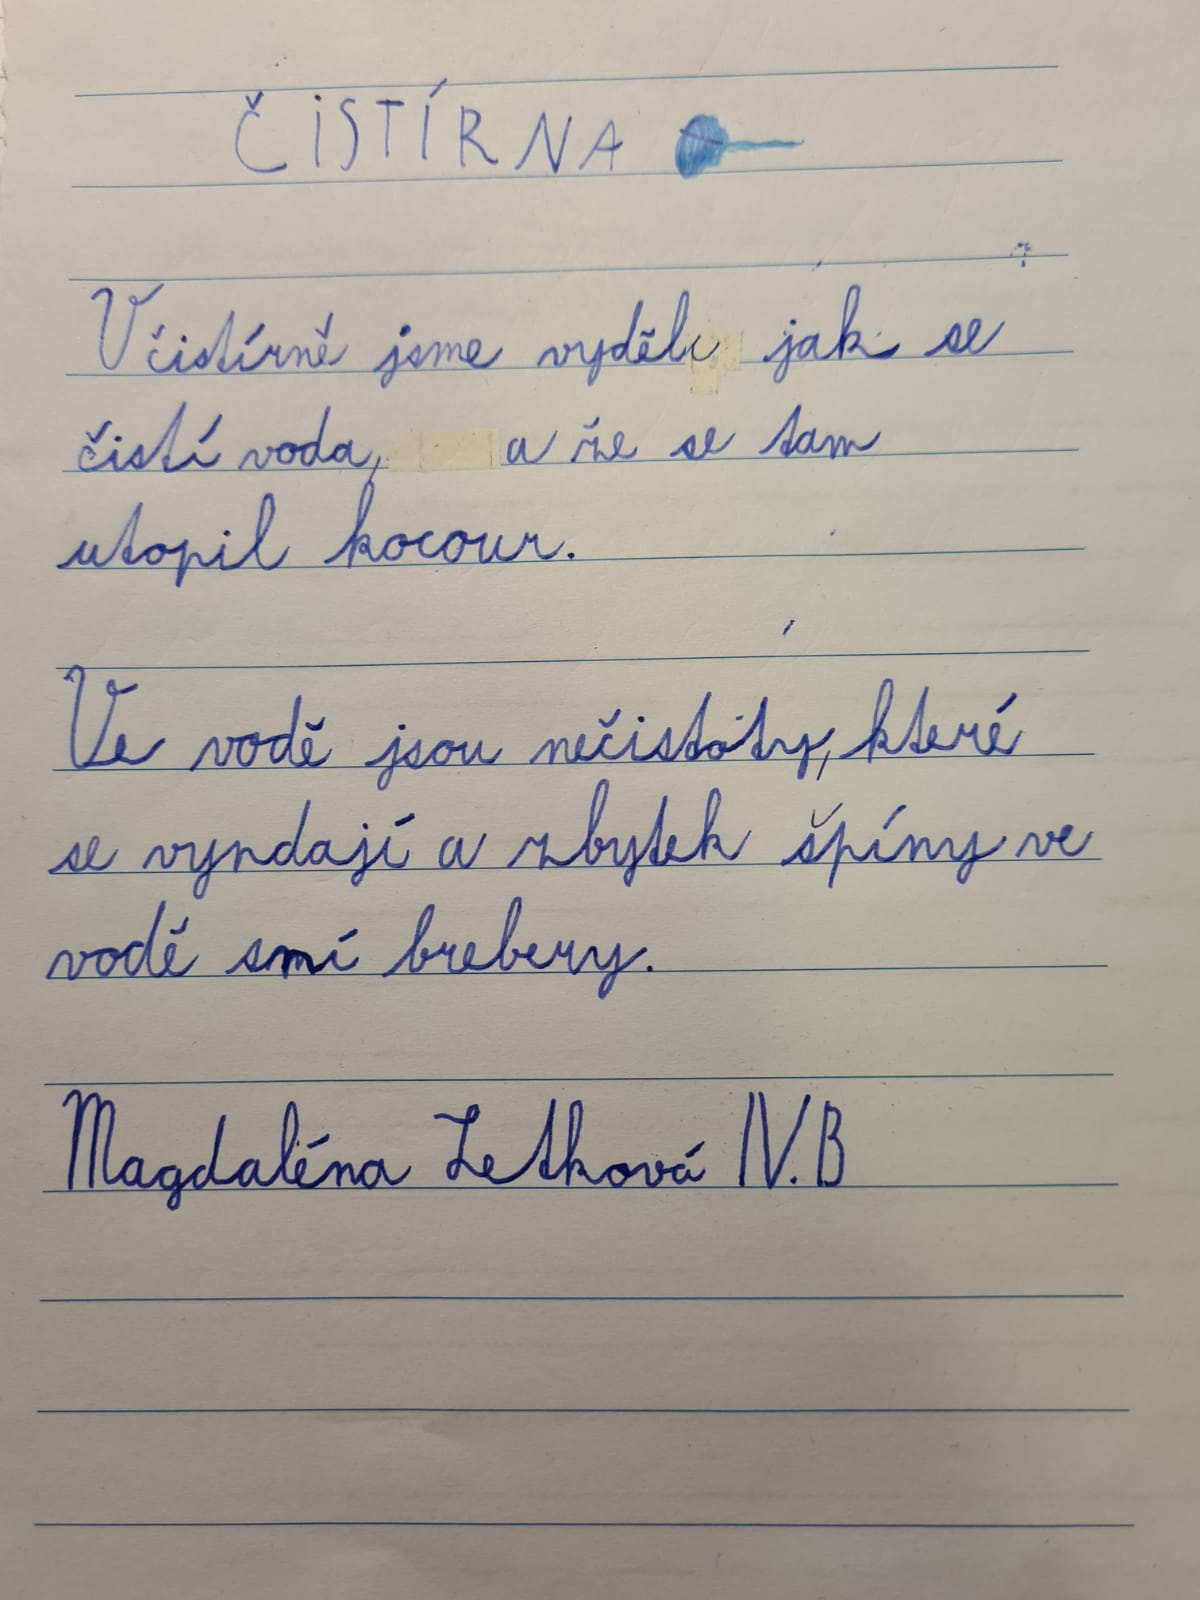 ČISTÍRNA
V čistírně jsme vyděli jak se
čistí voda, a že se tam
utopil kocour.
Ve vodě jsou nečistoty, které
se vyndají a zbytek špíny ve
vodě smí brebery.
Magdaléna Letková IV.B